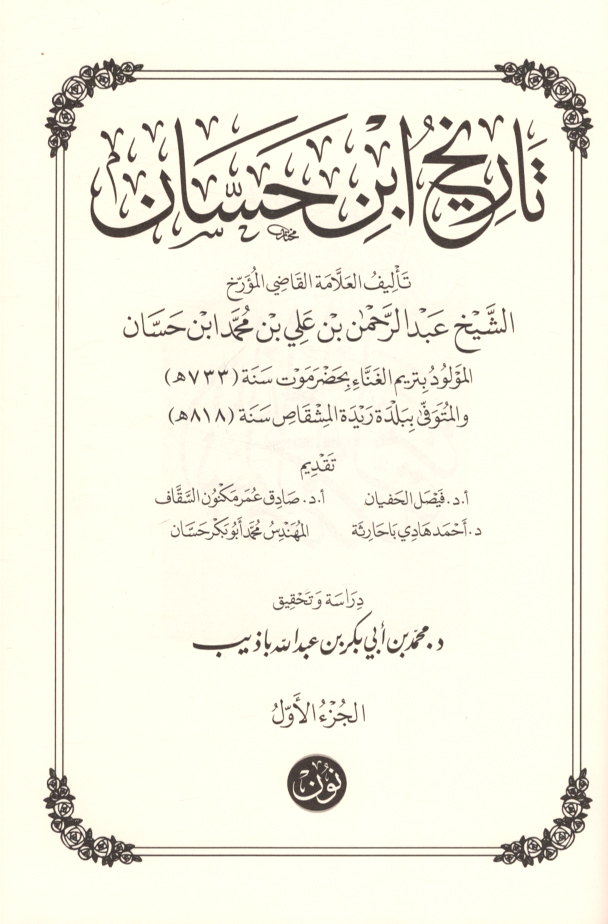 تَارِيخُ ابْنِ حَسَّان
تَأْلِيفُ العَلَّامَة القَاضِي المُؤَرِّخ
الشَّيْخ عَبْد الرَّحْمٰن بْن عَلِي بْن مُحَمَّد ابْن حَسَّان
المَوْلُودُ بِتَرِيم الغَنَّاء بِحَضْرَمَوْت سَنَة (٧٣٣هـ)
والمُتَوَفَّى بِبَلْدَة رَيْدَة المِشْقَاص سَنَة (٨١٨هـ)
تَقْدِيم
أ.د. فَيْصَل الحَفْيَان أ.د. صَادِق عُمَر مَكْنُون السَّقَّاف
د. أَحْمَد هَادِي بَاحَارِثَة المُهَنْدِسُ مُحَمَّد أَبُو بَكْر حَسَّان
دِرَاسَة وَتَحْقِيق
د. محمّد بن أبي بكر بن عبد الله باذيب
الجُزْءُ الأَوَّلُ
نُون